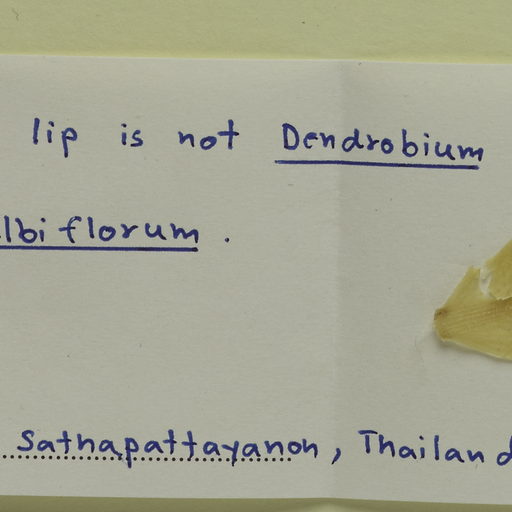 lip is not Dendrobium
lbiflorum.
Sathapattayanon, Thailand